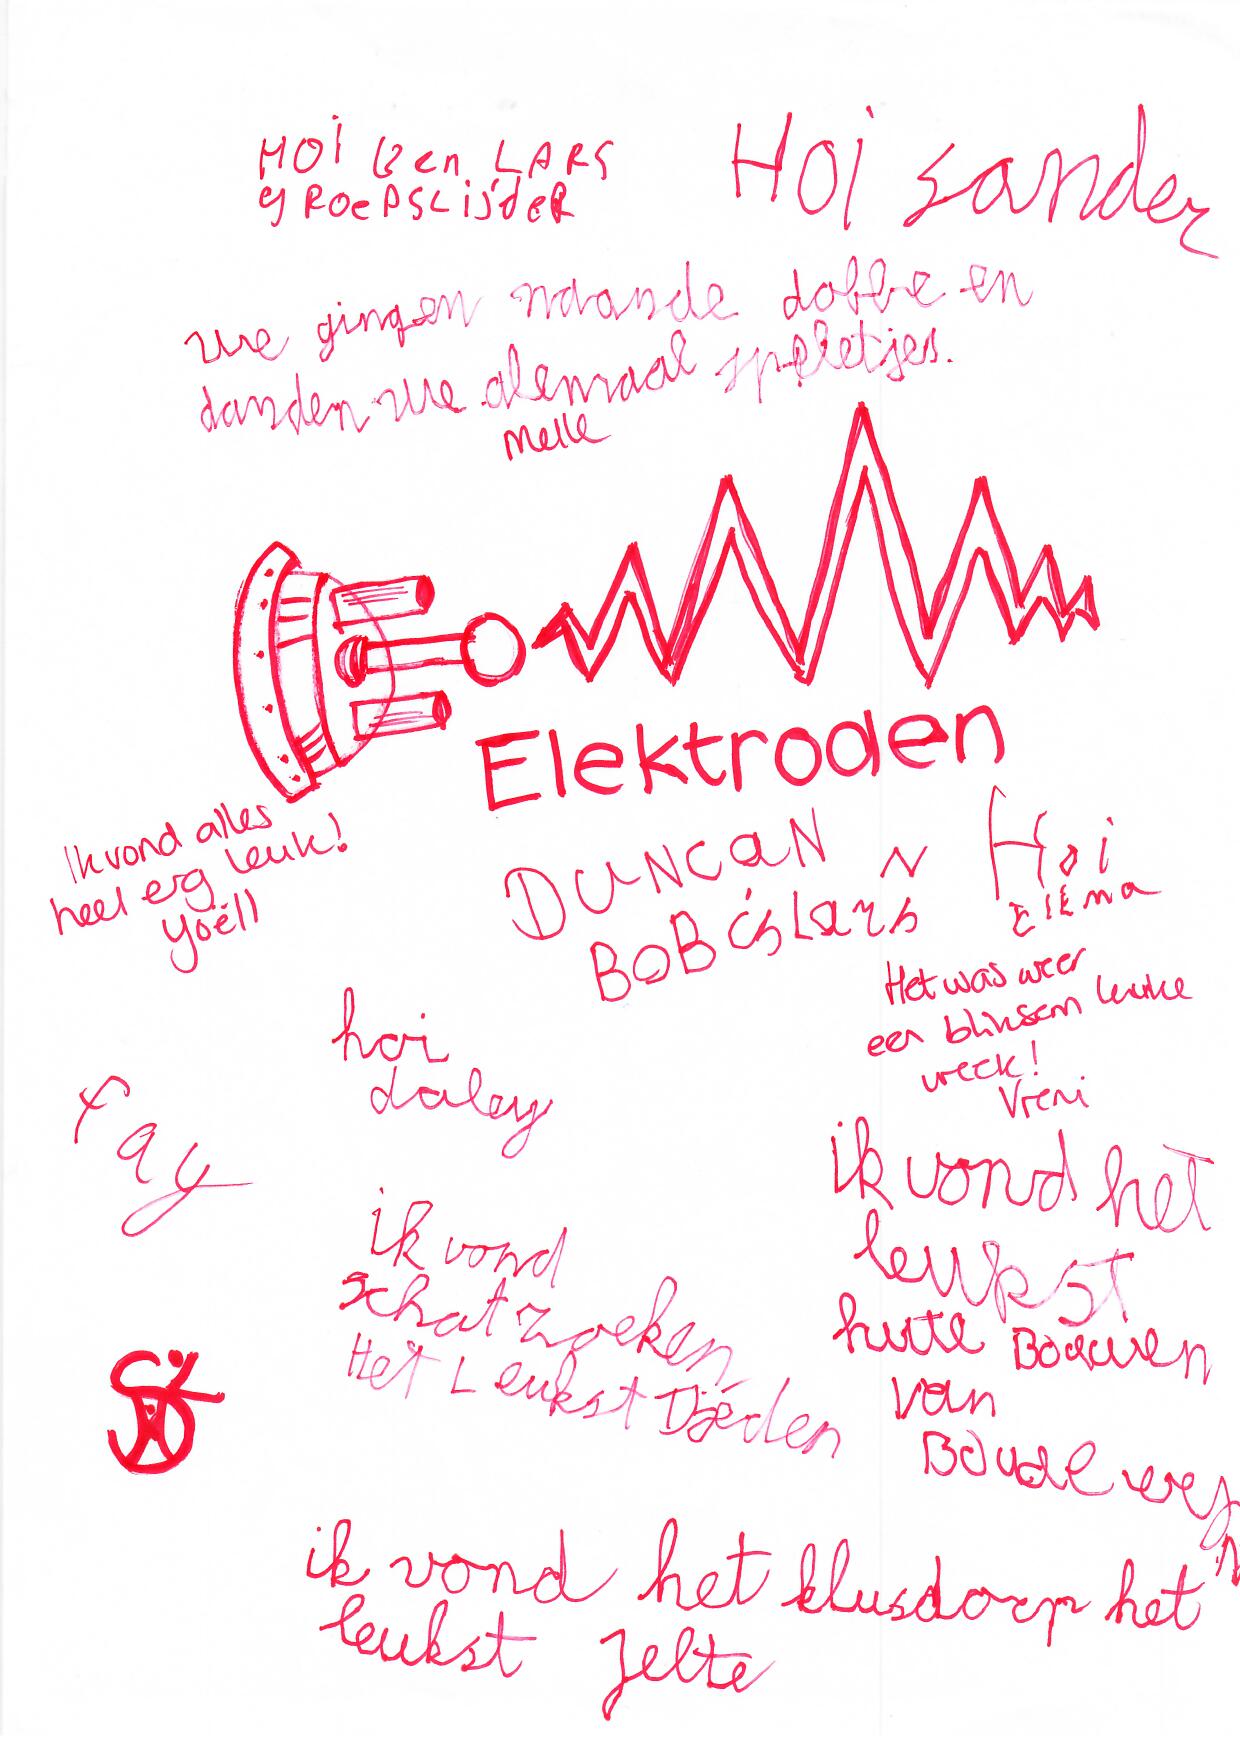 HOi ik Ben LARS
gROePSLijdeR
Hoi sander
we gingen naande dobbe en
danden we alemaal speletjes.
Melle
Elektroden
Ik vond alles
heel erg leuk!
Yoëll
DUNCaN
BoB is Lars
Hoi
ElEma
Het was weer
een bliksem leuke
week!
Vreni
hoi
daley
fay
ik vond
schat zoeken
Het Leukst
ik vond het
leukst
hute Bouwen
van
Boudewijn
ik vond het klusdorp het
leukst Jelte